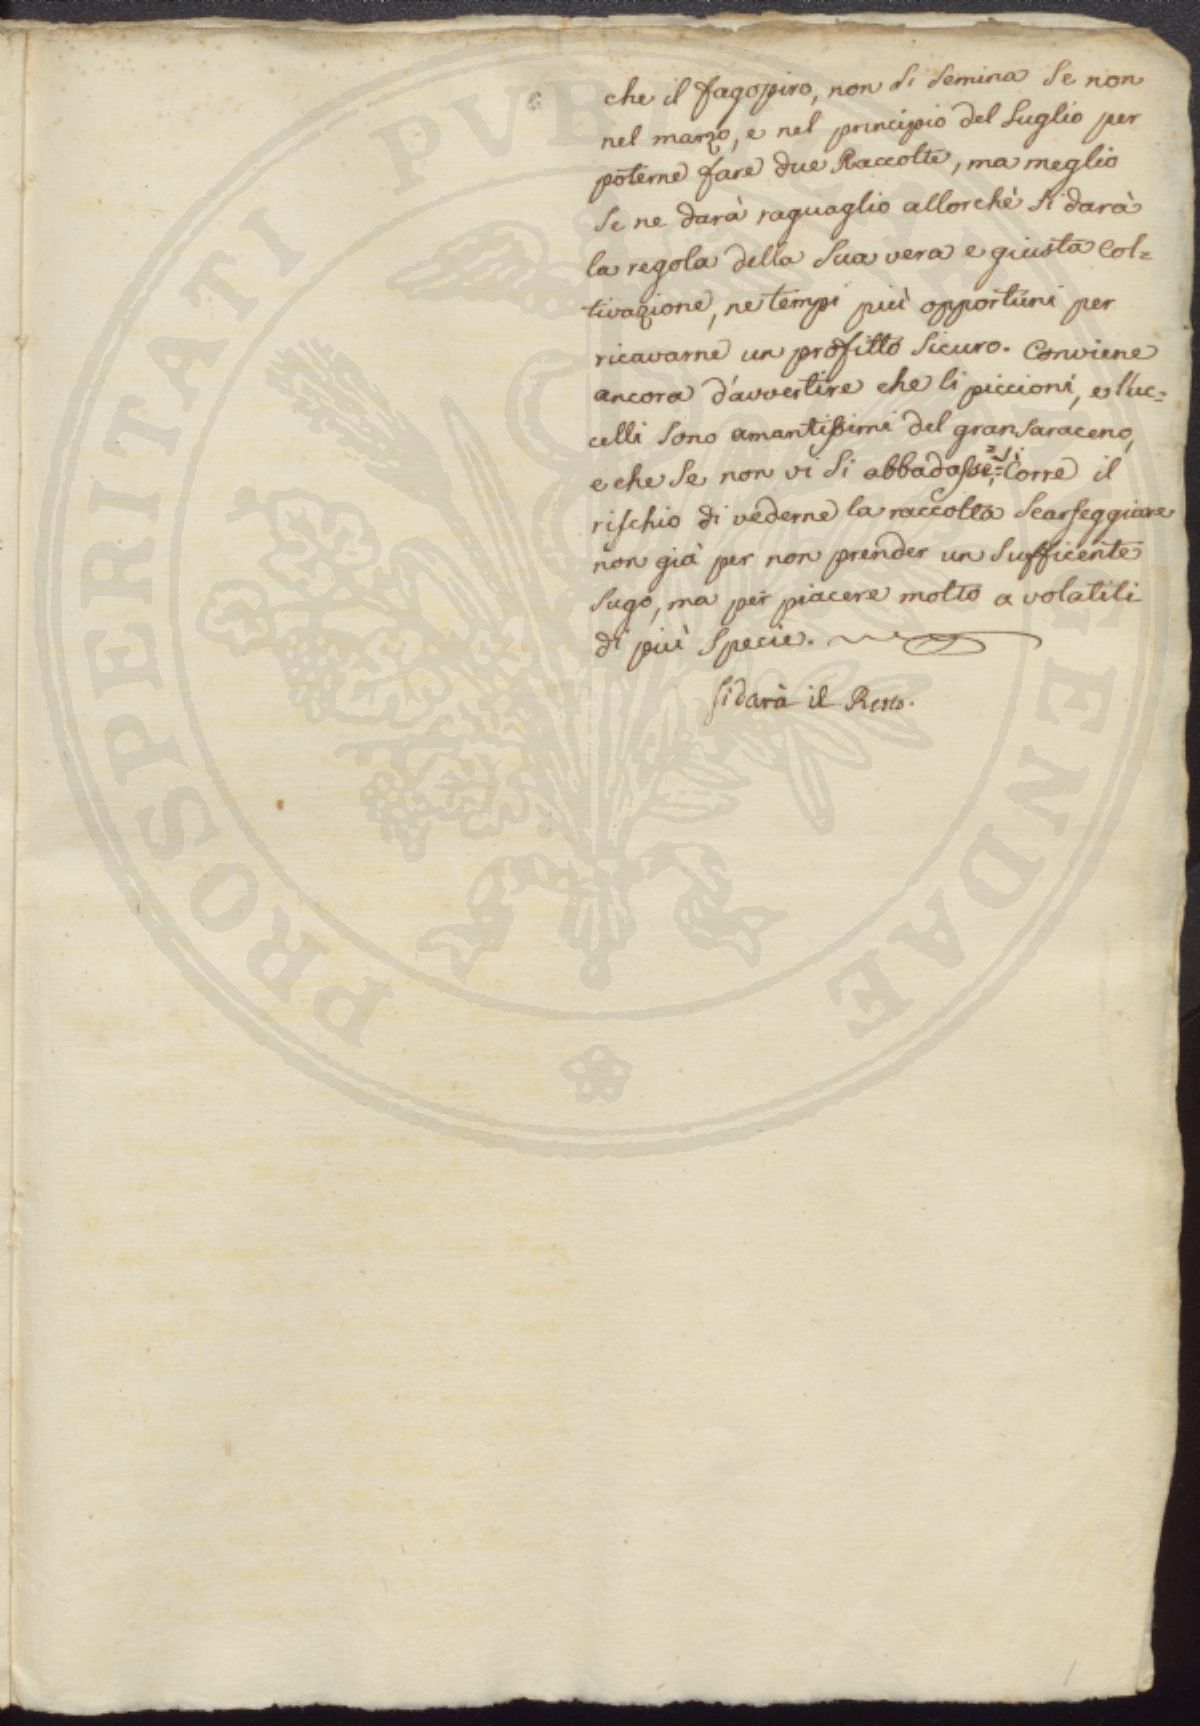 che il fagopiro, non si semina se non
nel marzo, e nel principio del Luglio per
poterne fare due Raccolte, ma meglio
se ne darà raguaglio allorchè si darà
la regola della sua vera e giusta Col=
tivazione, ne tempi più opportuni per
ricavarne un profitto sicuro. Conviene
ancora d'avvertire che li piccioni, e l'uc=
celli sono amantissimi del gran saraceno,
e che se non vi si abbadasse, =si
Corre il
rischio di vederne la raccolta scarseggiare
non già per non prender un sufficente
sugo, ma per piacere molto a volatili
di più specie.
si darà il Resto.
PROSPERITATI PUBLICAE AUGENDAE